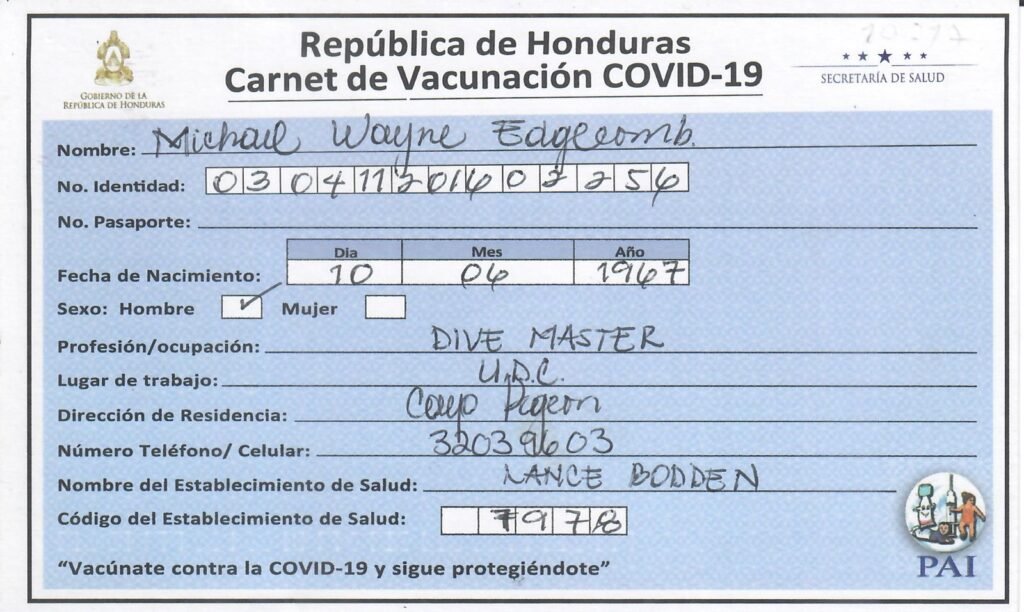 10:17
República de Honduras
Carnet de Vacunación COVID-19
GOBIERNO DE LA
REPÚBLICA DE HONDURAS
SECRETARÍA DE SALUD
Nombre: Michael Wayne Edgecomb.
No. Identidad: 0304112016032256
No. Pasaporte:
Dia Mes Año
Fecha de Nacimiento: 10 06 1967
Sexo: Hombre ✓ Mujer
Profesión/ocupación: DIVE MASTER
Lugar de trabajo: U.D.C.
Dirección de Residencia: Cayo Pigeon
Número Teléfono/ Celular: 32039603
Nombre del Establecimiento de Salud: LANCE BODDEN
Código del Establecimiento de Salud: 7978
“Vacúnate contra la COVID-19 y sigue protegiéndote”
PAI